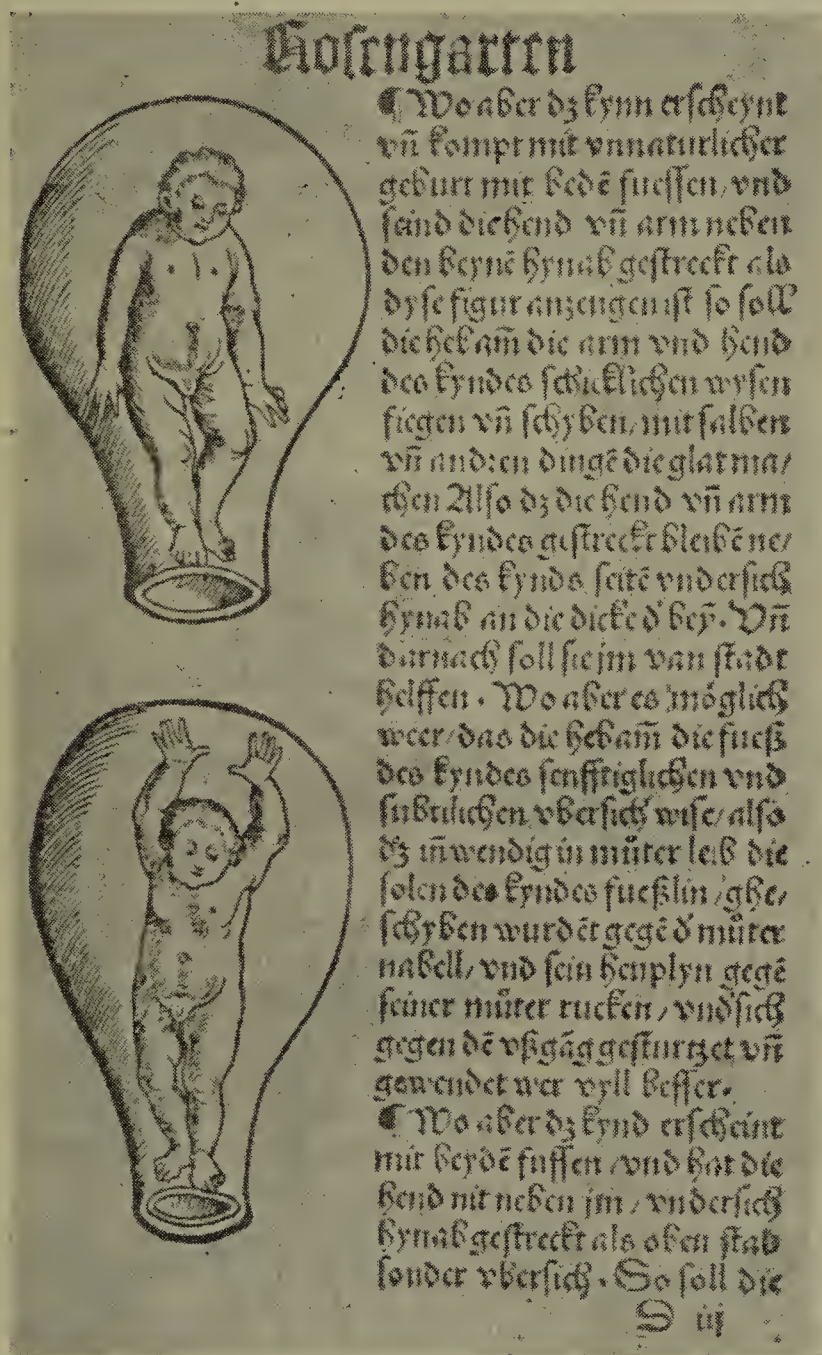 Rosengarten
¶ Wo aber dz kynn erscheynt
vn̄ kompt mit vnnaturlicher
geburt mit bedē fuessen, vnd
seind die hend vn̄ arm neben
den beynē hynab gestreckt als
dyse figur anzeugen ist so soll
die hebam̄ die arm vnd hend
des kyndes schicklichen wysen
fiegen vn̄ schyben, mit salben
vn̄ andꝛen dingē die glat ma/
chen Also dz die hend vn̄ arm
des kyndes gestreckt bleibē ne/
ben des kynds seitē vndersich
hynab an die dicke d' beȳ. Vn̄
darnach soll sie jm van stadt
helffen. Wo aber es möglich
weer/das die hebam̄ die fueß
des kyndes senfftiglichen vnd
subtilichen vbersich wise/also
dz in̄wendig in můter leib die
solen des kyndes fueßlin/ghe/
schyben wurdēt gegē d' můter
nabell/vnd sein heuplyn gegē
seiner můter rucken/vnd sich
gegen dē vßgāg gesturtzet vn̄
gewendet wer vyll besser.
¶ Wo aber dz kynd erscheint
mit beydē fussen/vnd hat die
hend nit neben jm/vndersich
hynab gestreckt als oben stad
sonder vbersich. So soll die
D iij